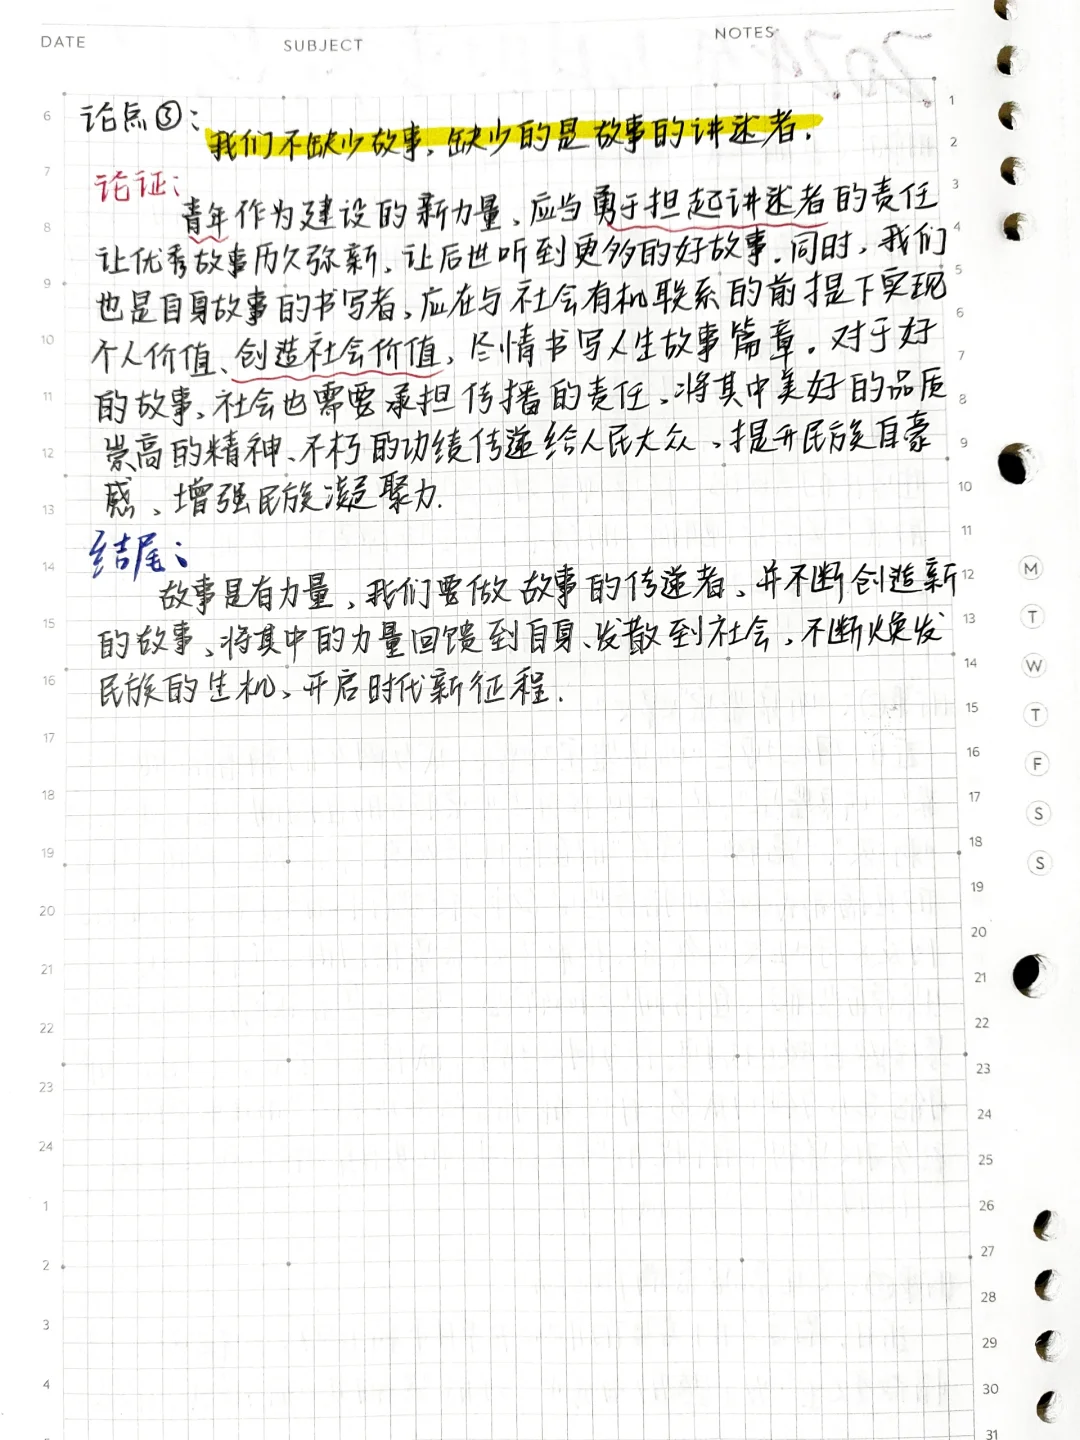 DATE
SUBJECT
NOTES
论点③：
我们不缺少故事，缺少的是故事的讲述者.
论证：
青年作为建设的新力量，应当勇于担起讲述者的责任
让优秀故事历久弥新，让后世听到更多的好故事.同时，我们
也是自身故事的书写者，应在与社会有机联系的前提下实现
个人价值、创造社会价值，尽情书写人生故事篇章.对于好
的故事，社会也需要承担传播的责任，将其中美好的品质
崇高的精神、不朽的功绩传递给人民大众，提升民族自豪
感，增强民族凝聚力.
结尾：
故事是有力量，我们要做故事的传递者，并不断创造新
的故事，将其中的力量回馈到自身、发散到社会，不断焕发
民族的生机，开启时代新征程.
6
7
8
9
10
11
12
13
14
15
16
17
18
19
20
21
22
23
24
1
2
3
4
1
2
3
4
5
6
7
8
9
10
11
12
13
14
15
16
17
18
19
20
21
22
23
24
25
26
27
28
29
30
31
M
T
W
T
F
S
S